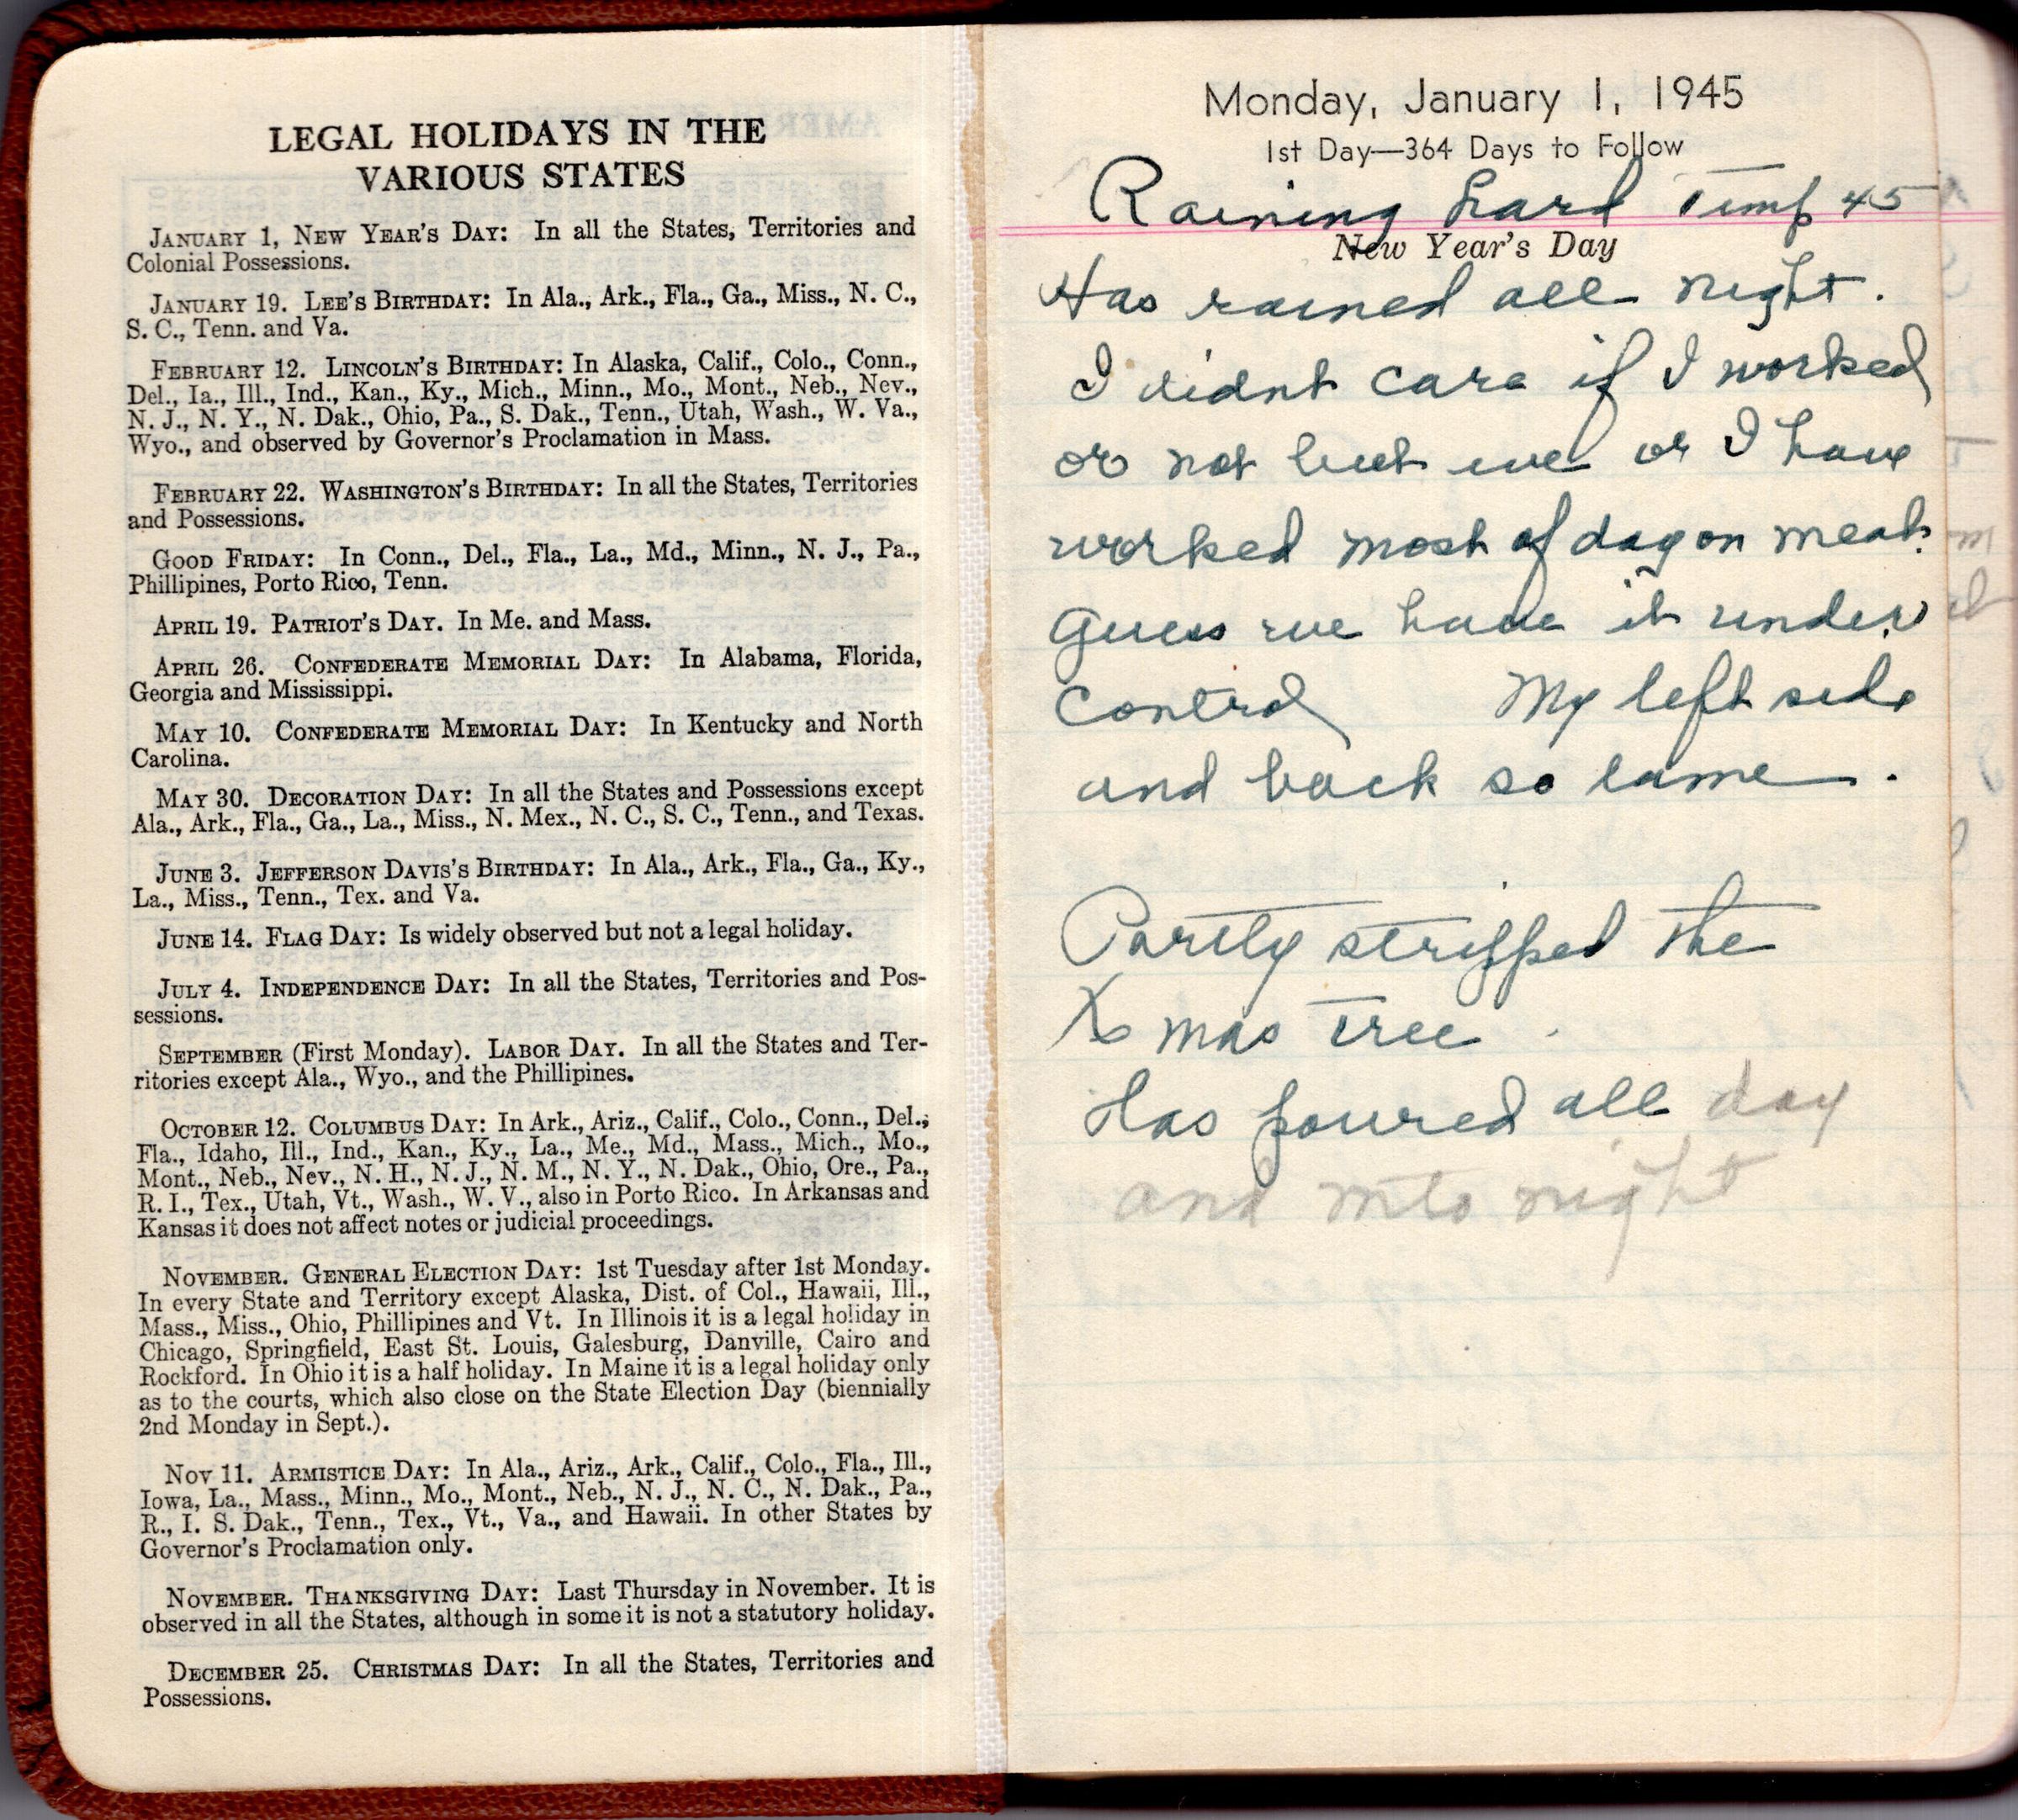 LEGAL HOLIDAYS IN THE
VARIOUS STATES
JANUARY 1, NEW YEAR'S DAY: In all the States, Territories and
Colonial Possessions.
JANUARY 19. LEE'S BIRTHDAY: In Ala., Ark., Fla., Ga., Miss., N. C.,
S. C., Tenn. and Va.
FEBRUARY 12. LINCOLN'S BIRTHDAY: In Alaska, Calif., Colo., Conn.,
Del., Ia., Ill., Ind., Kan., Ky., Mich., Minn., Mo., Mont., Neb., Nev.,
N. J., N. Y., N. Dak., Ohio, Pa., S. Dak., Tenn., Utah, Wash., W. Va.,
Wyo., and observed by Governor's Proclamation in Mass.
FEBRUARY 22. WASHINGTON'S BIRTHDAY: In all the States, Territories
and Possessions.
GOOD FRIDAY: In Conn., Del., Fla., La., Md., Minn., N. J., Pa.,
Phillipines, Porto Rico, Tenn.
APRIL 19. PATRIOT'S DAY. In Me. and Mass.
APRIL 26. CONFEDERATE MEMORIAL DAY: In Alabama, Florida,
Georgia and Mississippi.
MAY 10. CONFEDERATE MEMORIAL DAY: In Kentucky and North
Carolina.
MAY 30. DECORATION DAY: In all the States and Possessions except
Ala., Ark., Fla., Ga., La., Miss., N. Mex., N. C., S. C., Tenn., and Texas.
JUNE 3. JEFFERSON DAVIS'S BIRTHDAY: In Ala., Ark., Fla., Ga., Ky.,
La., Miss., Tenn., Tex. and Va.
JUNE 14. FLAG DAY: Is widely observed but not a legal holiday.
JULY 4. INDEPENDENCE DAY: In all the States, Territories and Pos-
sessions.
SEPTEMBER (First Monday). LABOR DAY. In all the States and Ter-
ritories except Ala., Wyo., and the Phillipines.
OCTOBER 12. COLUMBUS DAY: In Ark., Ariz., Calif., Colo., Conn., Del.,
Fla., Idaho, Ill., Ind., Kan., Ky., La., Me., Md., Mass., Mich., Mo.,
Mont., Neb., Nev., N. H., N. J., N. M., N. Y., N. Dak., Ohio, Ore., Pa.,
R. I., Tex., Utah, Vt., Wash., W. V., also in Porto Rico. In Arkansas and
Kansas it does not affect notes or judicial proceedings.
NOVEMBER. GENERAL ELECTION DAY: 1st Tuesday after 1st Monday.
In every State and Territory except Alaska, Dist. of Col., Hawaii, Ill.,
Mass., Miss., Ohio, Phillipines and Vt. In Illinois it is a legal holiday in
Chicago, Springfield, East St. Louis, Galesburg, Danville, Cairo and
Rockford. In Ohio it is a half holiday. In Maine it is a legal holiday only
as to the courts, which also close on the State Election Day (biennially
2nd Monday in Sept.).
NOV 11. ARMISTICE DAY: In Ala., Ariz., Ark., Calif., Colo., Fla., Ill.,
Iowa, La., Mass., Minn., Mo., Mont., Neb., N. J., N. C., N. Dak., Pa.,
R., I. S. Dak., Tenn., Tex., Vt., Va., and Hawaii. In other States by
Governor's Proclamation only.
NOVEMBER. THANKSGIVING DAY: Last Thursday in November. It is
observed in all the States, although in some it is not a statutory holiday.
DECEMBER 25. CHRISTMAS DAY: In all the States, Territories and
Possessions.
Monday, January 1, 1945
1st Day—364 Days to Follow
Raining hard Temp 45
New Year's Day
Has rained all night.
I didnt care if I worked
or not but we or I have
worked most of day on meat.
Guess we have it under
control My left side
and back so lame.
Partly stripped the
Xmas tree.
Has poured all day
and into night